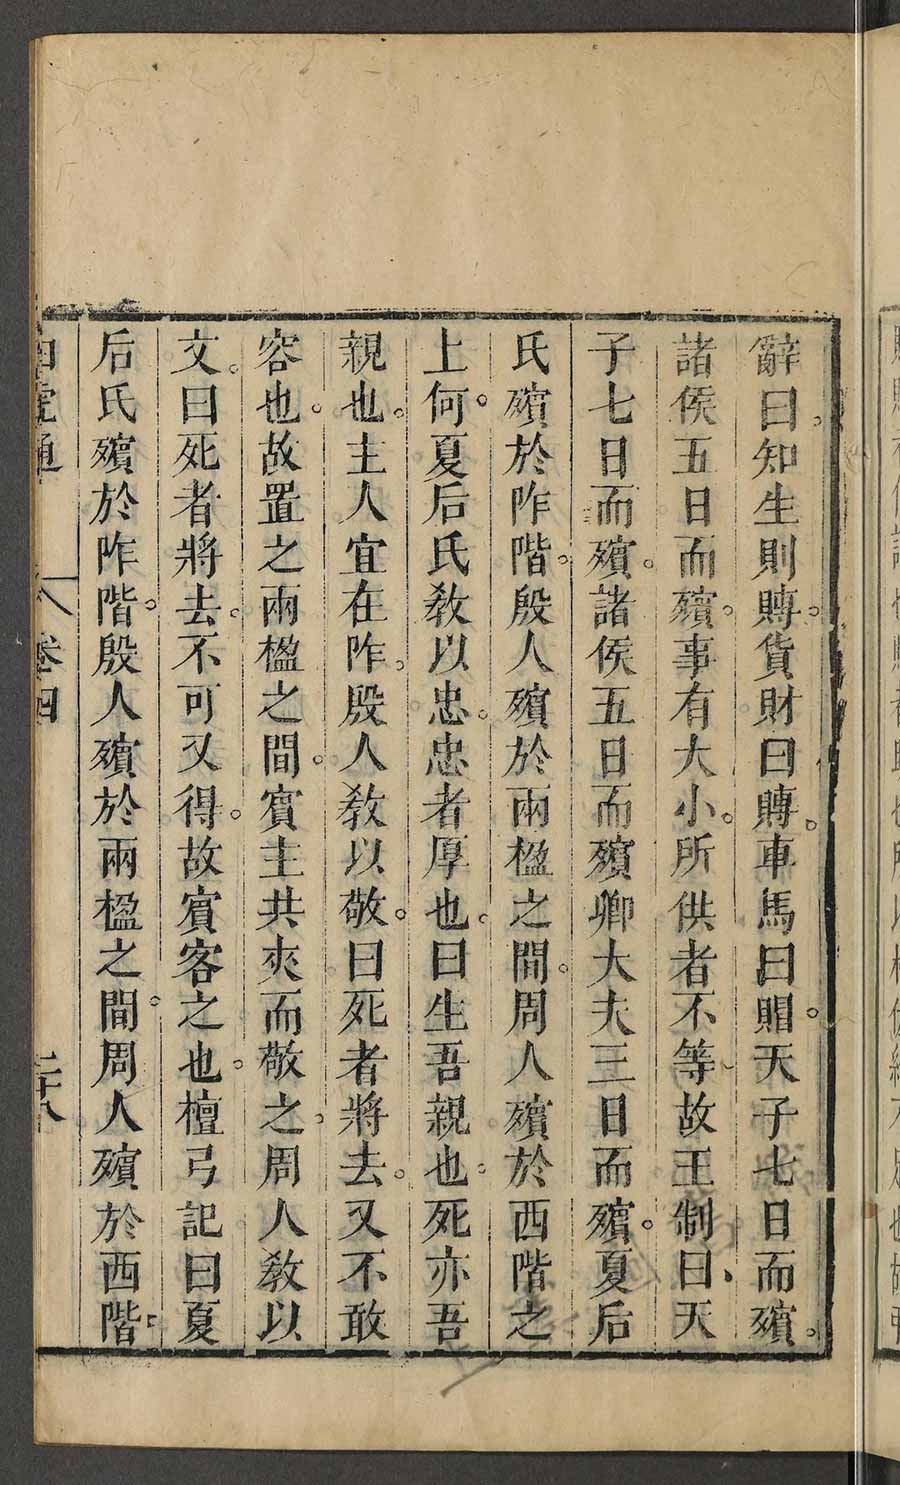 辭曰知生則賻貨財曰賻車馬曰賵天子七日而殯
諸侯五日而殯事有大小所供者不等故王制曰天
子七日而殯諸侯五日而殯卿大夫三日而殯夏后
氏殯於阼階殷人殯於兩楹之間周人殯於西階之
上何夏后氏敎以忠忠者厚也曰生吾親也死亦吾
親也主人宜在阼殷人敎以敬曰死者將去又不敢
容也故置之兩楹之間賓主共夾而敬之周人敎以
文曰死者將去不可又得故賓客之也檀弓記曰夏
后氏殯於阼階殷人殯於兩楹之間周人殯於西階
白虎通 卷四 二十八